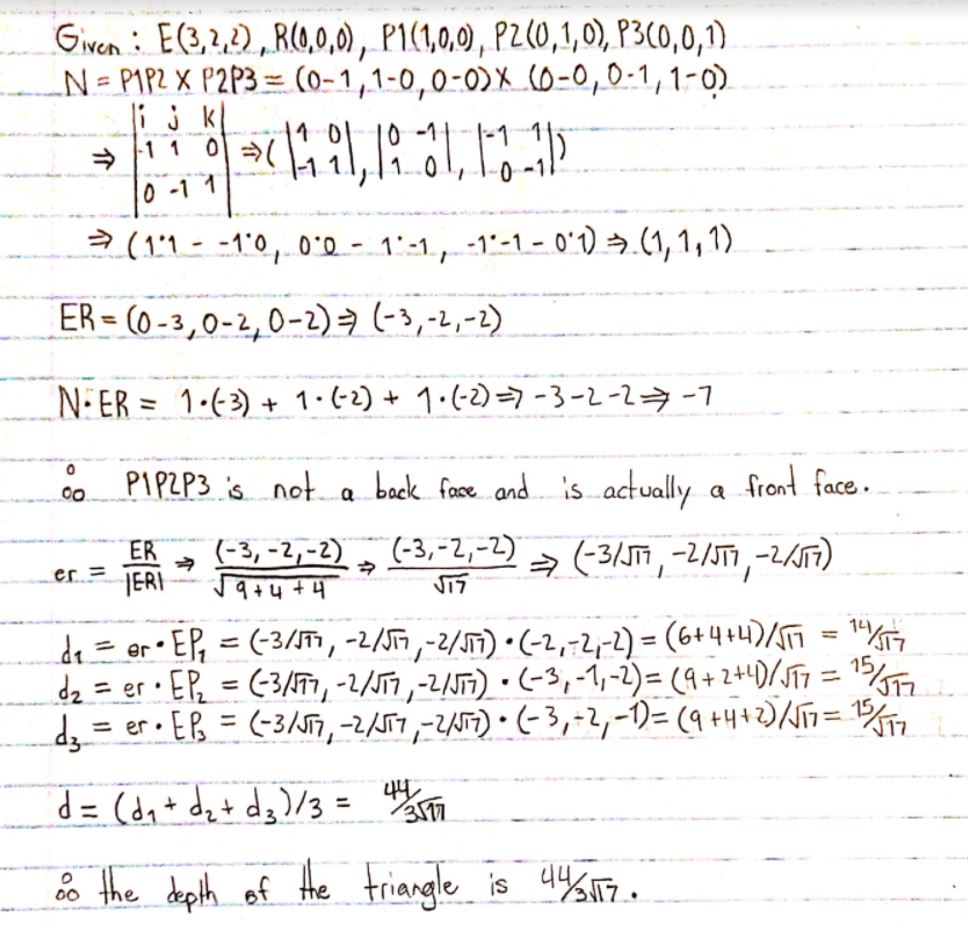 Given : E(3,2,2), R(0,0,0), P1(1,0,0), P2(0,1,0), P3(0,0,1)
N = P1P2 X P2P3 = (0-1, 1-0, 0-0) X (0-0, 0-1, 1-0)
⇒ |i j k| |-1 1 0| |0 -1 1| ⇒ (|1 0| |-1 1|, |0 -1| |1 0|, |-1 1| |0 -1|)
⇒ (1·1 - -1·0, 0·0 - 1·-1, -1·-1 - 0·1) ⇒ (1,1,1)
ER = (0-3, 0-2, 0-2) ⇒ (-3,-2,-2)
N·ER = 1·(-3) + 1·(-2) + 1·(-2) ⇒ -3-2-2 ⇒ -7
∴ P1P2P3 is not a back face and is actually a front face.
er = ER/|ER| ⇒ (-3,-2,-2)/√9+4+4 ⇒ (-3,-2,-2)/√17 ⇒ (-3/√17, -2/√17, -2/√17)
d₁ = er·EP₁ = (-3/√17, -2/√17, -2/√17)·(-2,-2,-2) = (6+4+4)/√17 = 14/√17
d₂ = er·EP₂ = (-3/√17, -2/√17, -2/√17)·(-3,-1,-2) = (9+2+4)/√17 = 15/√17
d₃ = er·EP₃ = (-3/√17, -2/√17, -2/√17)·(-3,-2,-1) = (9+4+2)/√17 = 15/√17
d = (d₁+d₂+d₃)/3 = 44/3√17
∴ the depth of the triangle is 44/3√17.